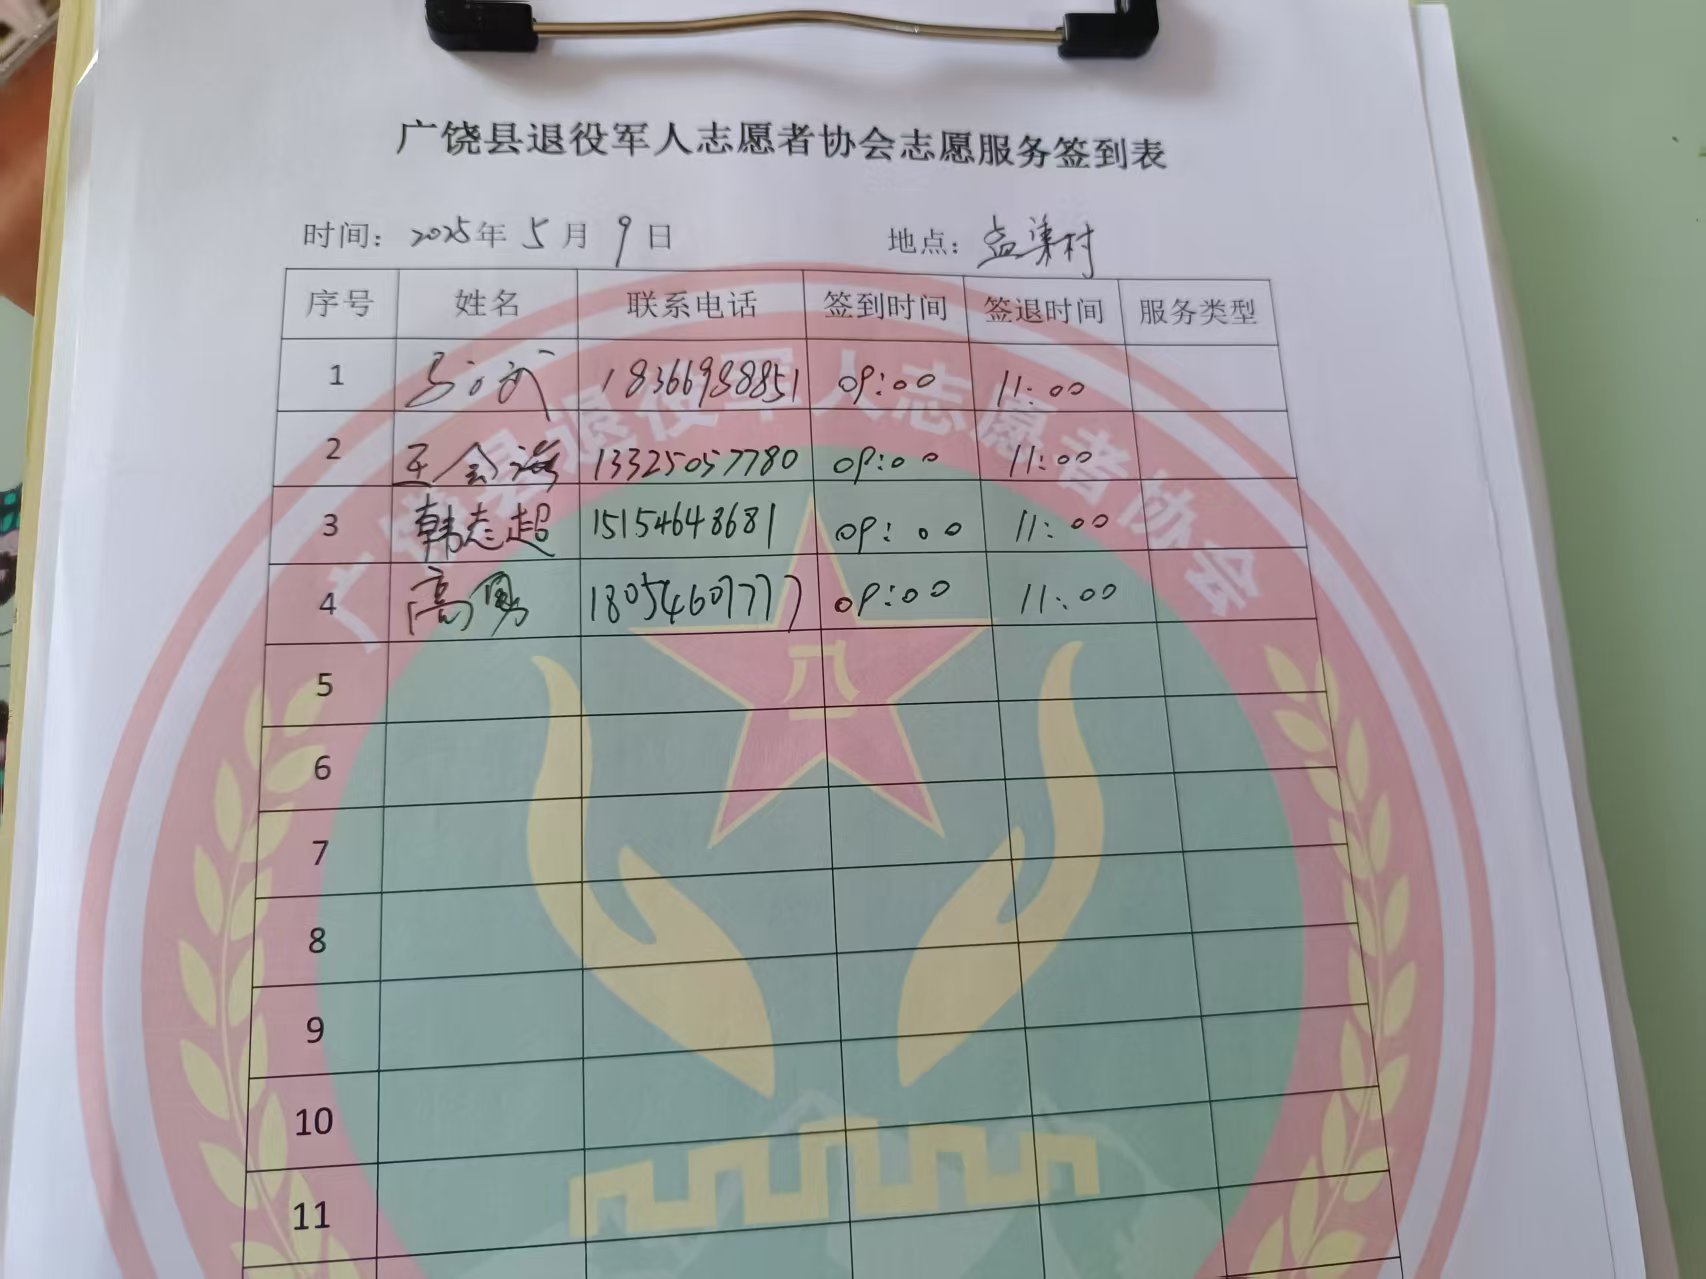 广饶县退役军人志愿者协会志愿服务签到表
时间: 2025年 5月 9日 地点: 盖渠村
序号 姓名 联系电话 签到时间 签退时间 服务类型
1 18366988851 09:00 11:00
2 王金海 13325057780 09:00 11:00
3 韩志超 15154648681 09:00 11:00
4 高勇 18054607777 09:00 11:00
5
6
7
8
9
10
11
广饶县退役军人志愿者协会
八一